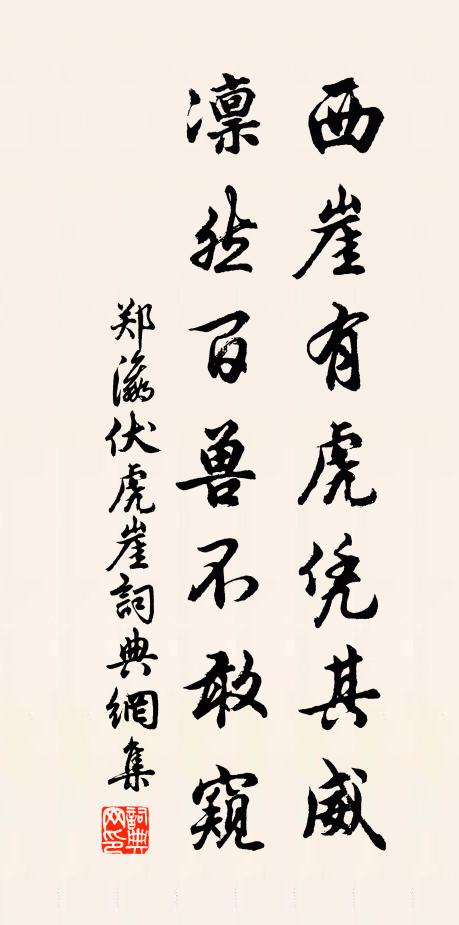 西崖有虎凭其威
凛然百兽不敢窥
郑瀛伏虎崖詞典網集
詞典网印